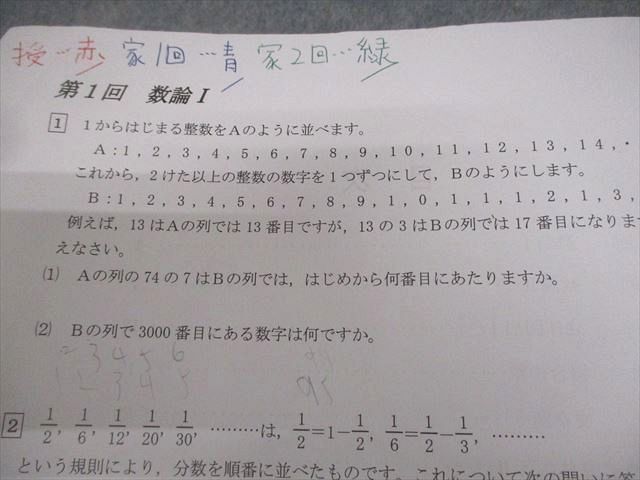 授…赤 家1回…青 家2回…緑
第1回 数論Ⅰ
1 1からはじまる整数をAのように並べます。
A:1,2,3,4,5,6,7,8,9,10,11,12,13,14,・
これから,2けた以上の整数の数字を1つずつにして,Bのようにします。
B:1,2,3,4,5,6,7,8,9,1,0,1,1,1,2,1,3,
例えば,13はAの列では13番目ですが,13の3はBの列では17番目になりま
えなさい。
(1) Aの列の74の7はBの列では,はじめから何番目にあたりますか。
(2) Bの列で3000番目にある数字は何ですか。
2 3 4 5 6
1 2 3 4 5 95
2 1/2, 1/6, 1/12, 1/20, 1/30, ………は, 1/2=1-1/2, 1/6=1/2-1/3, ………
という規則により,分数を順番に並べたものです。これについて次の問いに答